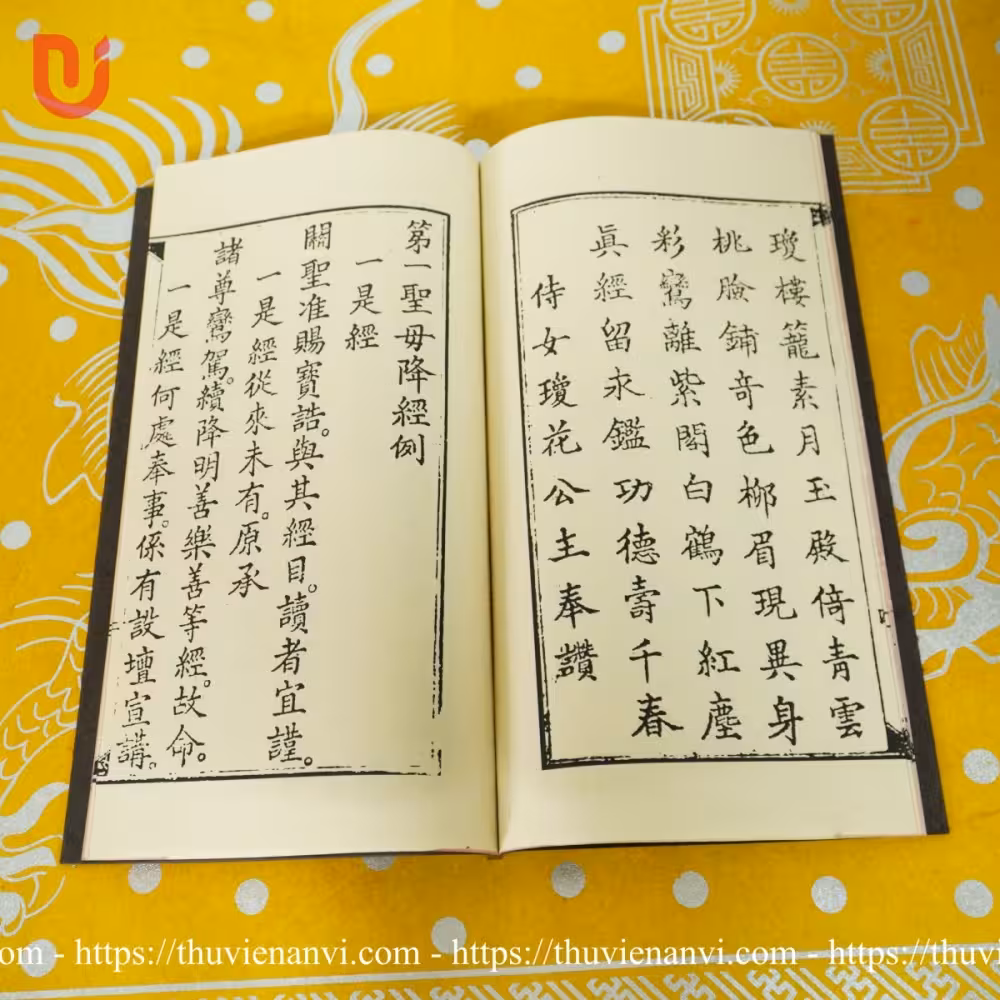 瓊樓籠素月玉殿倚青雲
桃臉鋪竒色桺眉現異身
彩鸞離紫閣白鶴下紅塵
眞經留永鑑功德壽千春
侍女瓊花公主奉讚
第一聖母降經例
一是經
關聖准賜寶誥。與其經目。讀者宜謹。
一是經從來未有。原承
諸尊鸞駕。續降明善樂善等經。故命。
一是經何處奉事。係有設壇宣講。
om - https://thuvienanvi.com - https://thuvienanvi.com - https://thuvi